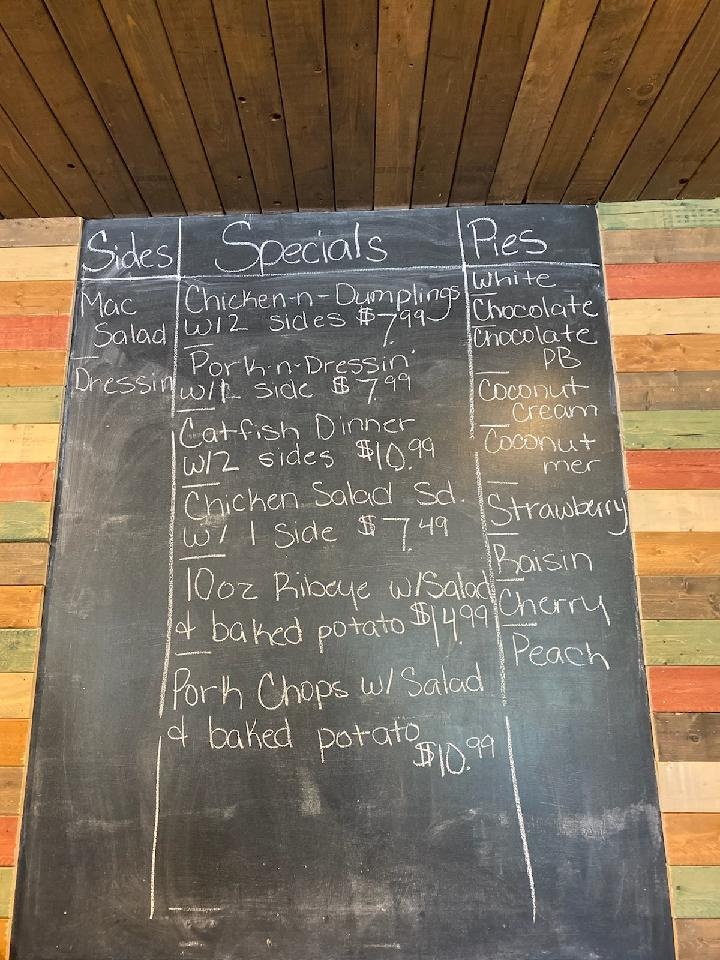 Sides
Mac
Salad
Dressin
Specials
Chicken-n-Dumplings
w/2 sides $7.99
Pork-n-Dressin'
w/2 side $7.99
Catfish Dinner
w/2 sides $10.99
Chicken Salad Sd.
w/ 1 side $7.49
10oz Ribeye w/Salad
& baked potato $14.99
Pork Chops w/ Salad
& baked potato
$10.99
Pies
White
Chocolate
Chocolate
PB
Coconut
Cream
Coconut
mer
Strawberry
Raisin
Cherry
Peach